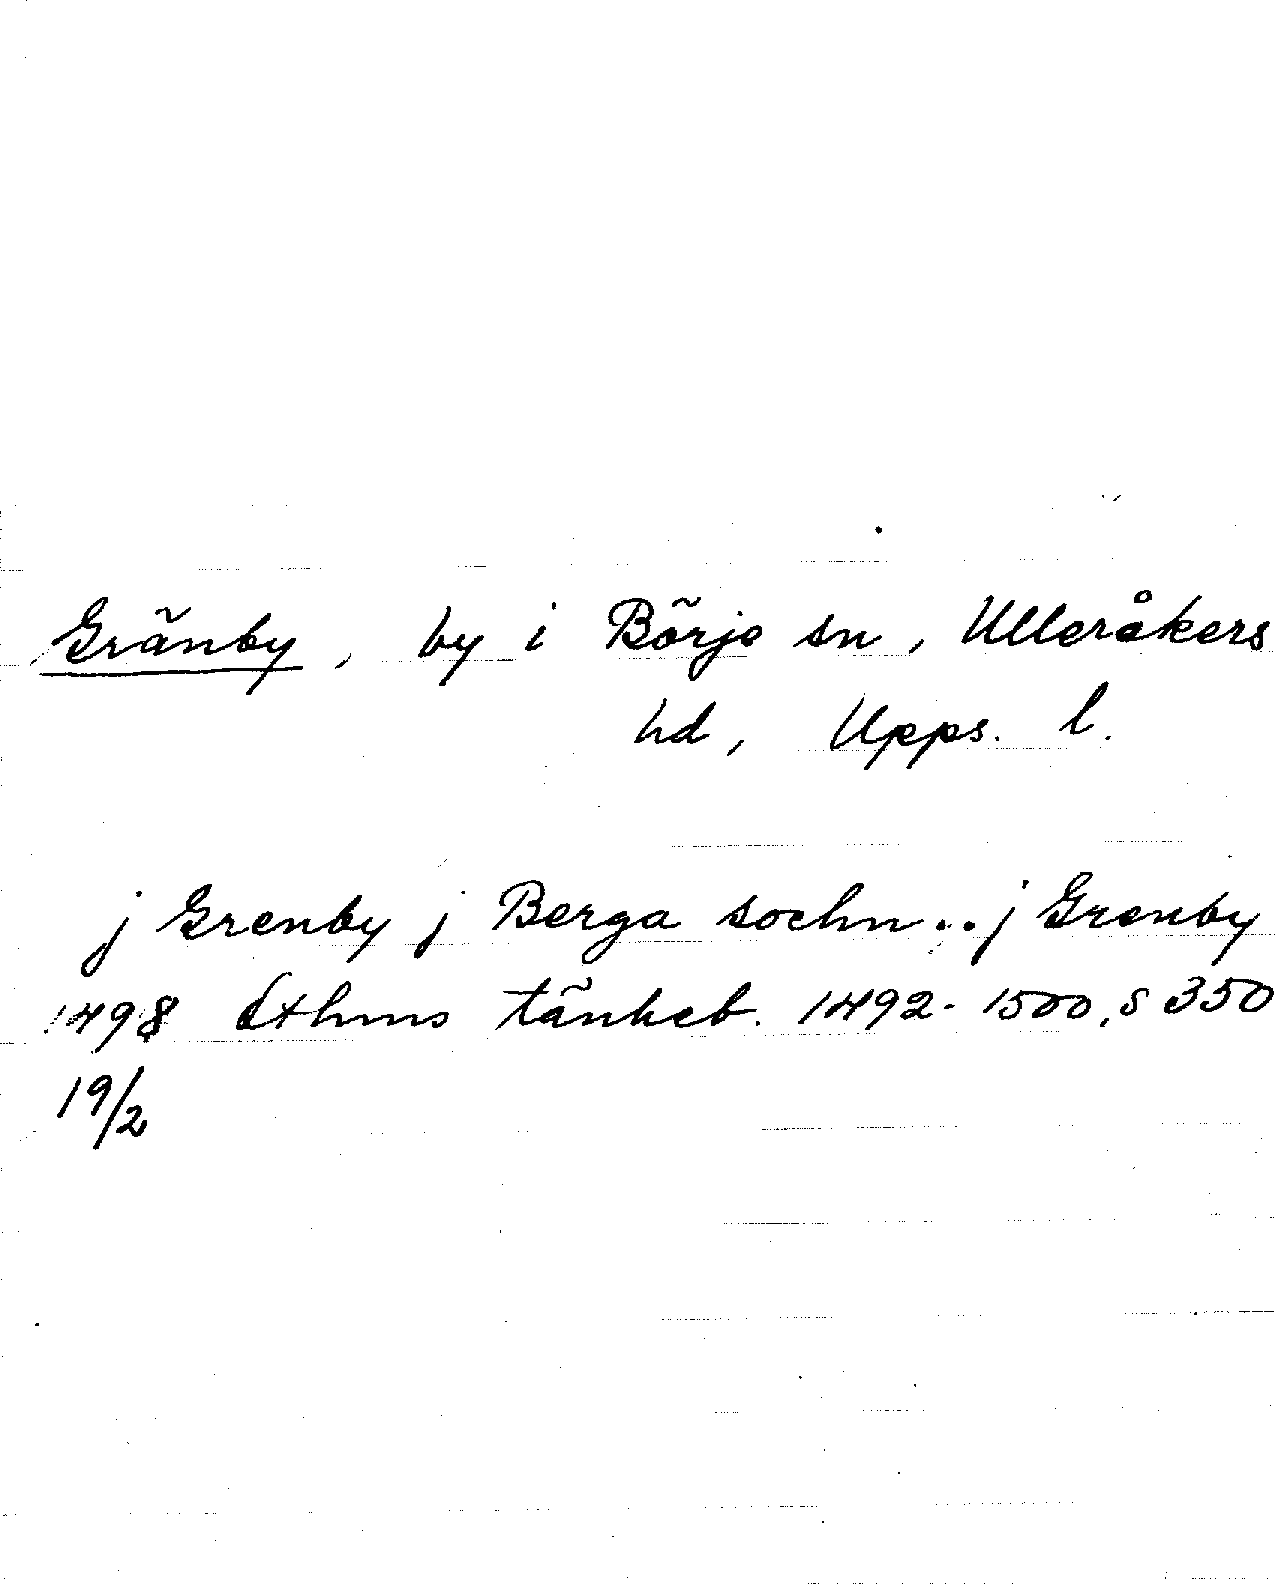 Gränby, by i Börje sn, Ulleråkers
hd, Upps. l.
j Grenby j Berga sochn... j Grenby
1498 Sthms tänkeb. 1492-1500, s 350
19/2